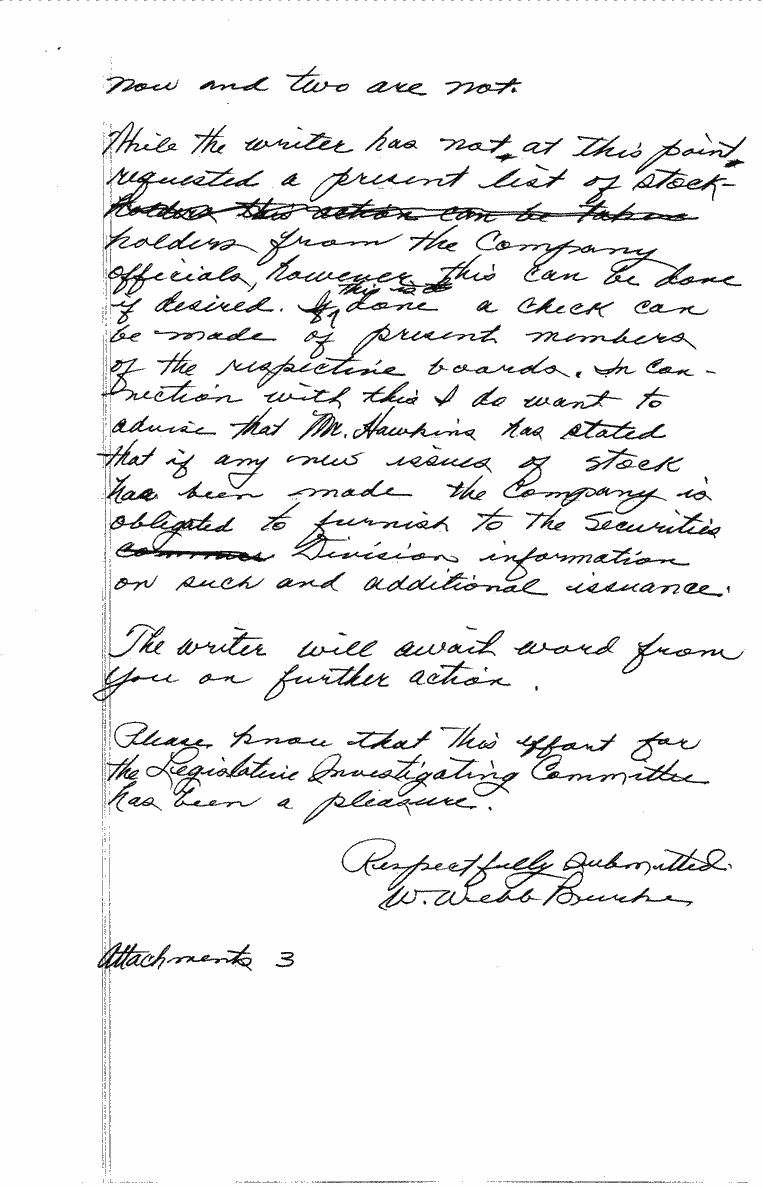 now and two are not.
While the writer has not, at this point,
requested a present list of stock-
holders this action can be taken
holders from the Company
officials, however, this can be done
this is
if desired. If done a check can
be made of present members
of the respective boards. In con-
nection with this I do want to
advise that Mr. Hawkins has stated
that if any new issues of stock
has been made the Company is
obligated to furnish to the Securities
Division information
on such and additional issuance.
The writer will await word from
you on further action.
Please know that this effort for
the Legislative Investigating Committee
has been a pleasure.
Respectfully submitted.
W. Webb Burke
Attachments 3